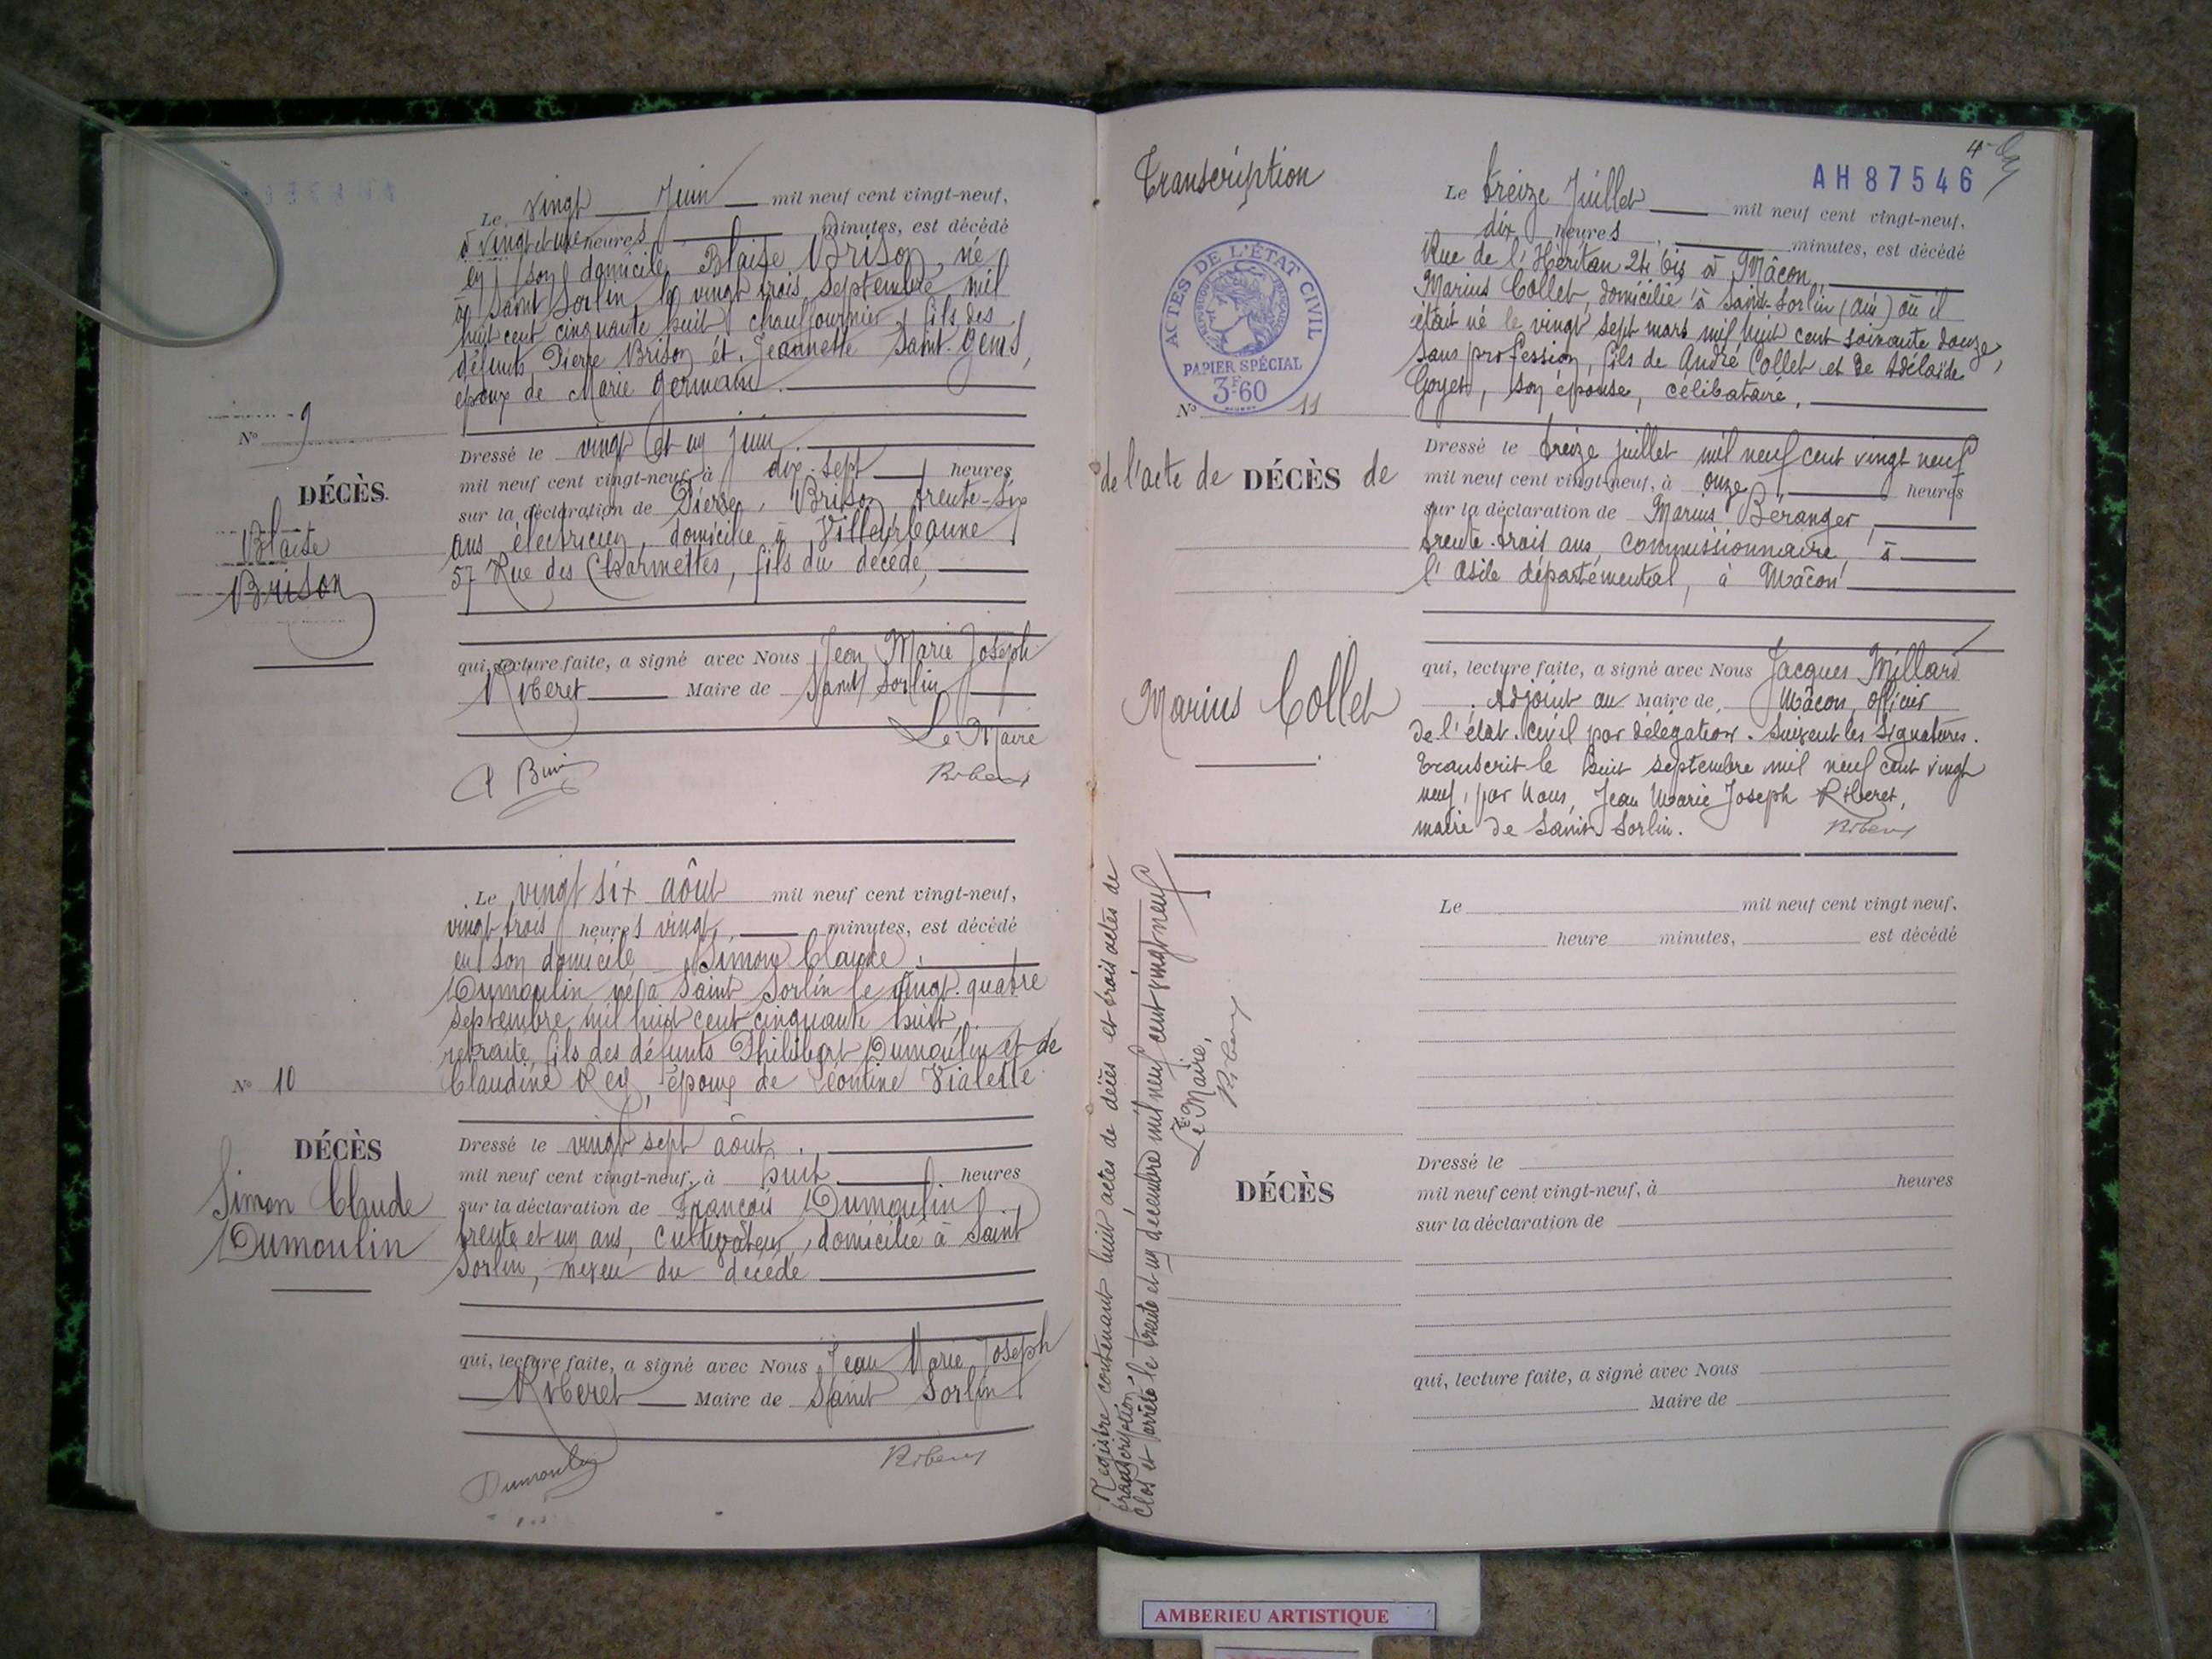 Le vingt Juin mil neuf cent vingt-neuf,
à vingt et une heures minutes, est décédé
en son domicile Blaise Brison, né
à Saint Sorlin le vingt trois Septembre mil
huit cent cinquante huit chaufournier, fils des
défunts Pierre Brison et Jeannette Saint-Gens,
époux de Marie Germain.
N° 9
DÉCÈS.
Blaise
Brison
Dressé le vingt et un juin.
mil neuf cent vingt-neuf, à dix-sept heures
sur la déclaration de Pierre Brison trente-six
ans électricien, domicilié à Villeurbanne
57 Rue des Charmettes, fils du décédé,
qui, lecture faite, a signé avec Nous Jean Marie Joseph
Riberet Maire de Saint Sorlin
Le Maire
Le vingt six août mil neuf cent vingt-neuf,
vingt trois heures vingt, minutes, est décédé
en son domicile Simon Claude
Dumoulin né à Saint Sorlin le vingt-quatre
septembre mil huit cent cinquante huit,
retraité, fils des défunts Philibert Dumoulin et de
Claudine Rey, époux de Léontine Vialette
N° 10
DÉCÈS
Simon Claude
Dumoulin
Dressé le vingt sept août.
mil neuf cent vingt-neuf, à huit heures
sur la déclaration de François Dumoulin
trente et un ans, cultivateur, domicilié à Saint
Sorlin, neveu du décédé
qui, lecture faite, a signé avec Nous Jean Marie Joseph
Riberet Maire de Saint Sorlin
Dumoulin
Transcription
4
AH87546
ACTES DE L'ÉTAT CIVIL
RÉPUBLIQUE FRANÇAISE
PAPIER SPÉCIAL
3F60
N° 11
de l'acte de DÉCÈS de
Marius Collet
Le treize Juillet mil neuf cent vingt-neuf,
dix heures minutes, est décédé
Rue de l'Héritan 24 bis à Mâcon,
Marius Collet, domicilié à Saint-Sorlin (Ain) où il
était né le vingt sept mars mil huit cent soixante douze,
sans profession, fils de André Collet et de Adélaïde
Goyet, son épouse, célibataire,
Dressé le treize juillet mil neuf cent vingt neuf
mil neuf cent vingt-neuf, à onze heures
sur la déclaration de Marius Béranger,
trente-trois ans, commissionnaire à
l'asile départemental, à Mâcon
qui, lecture faite, a signé avec Nous Jacques Millard
Adjoint au Maire de Mâcon, officier
de l'état-civil par délégation. Suivent les signatures.
Transcrit le huit septembre mil neuf cent vingt
neuf, par Nous, Jean Marie Joseph Riberet,
maire de Saint Sorlin.
Registre contenant huit actes de décès et trois actes de
transcription,
Clos et arrêté le trente et un décembre mil neuf cent vingt neuf
Le Maire,
Le mil neuf cent vingt neuf.
heure minutes, est décédé
DÉCÈS
Dressé le
mil neuf cent vingt-neuf, à heures
sur la déclaration de
qui, lecture faite, a signé avec Nous
Maire de
AMBERIEU ARTISTIQUE